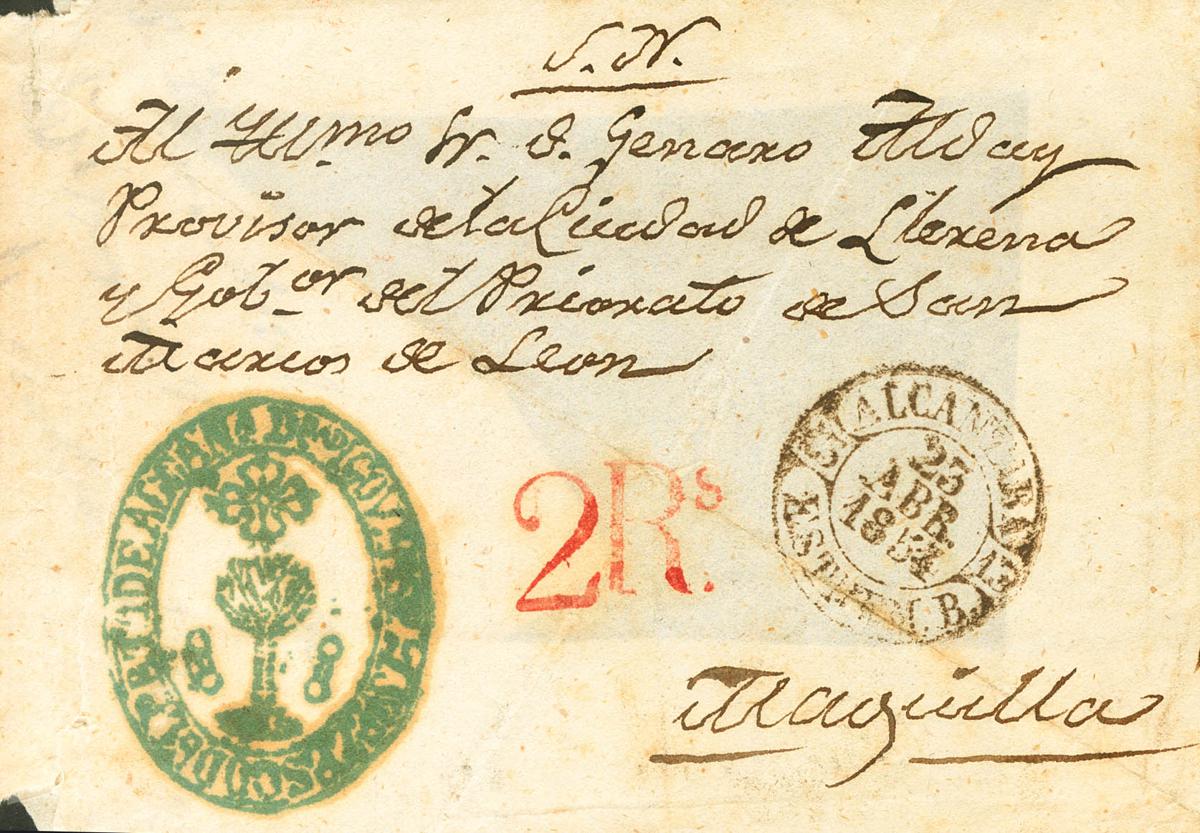 S. N.
Al Yllmo Sr. D. Genaro Alday
Provisor de la Ciudad de Llerena
y Gobor del Priorato de San
Marcos de Leon
2Rs.
ALCANTARA
25
ABR.
1854
ESTREM. B.
Maguilla